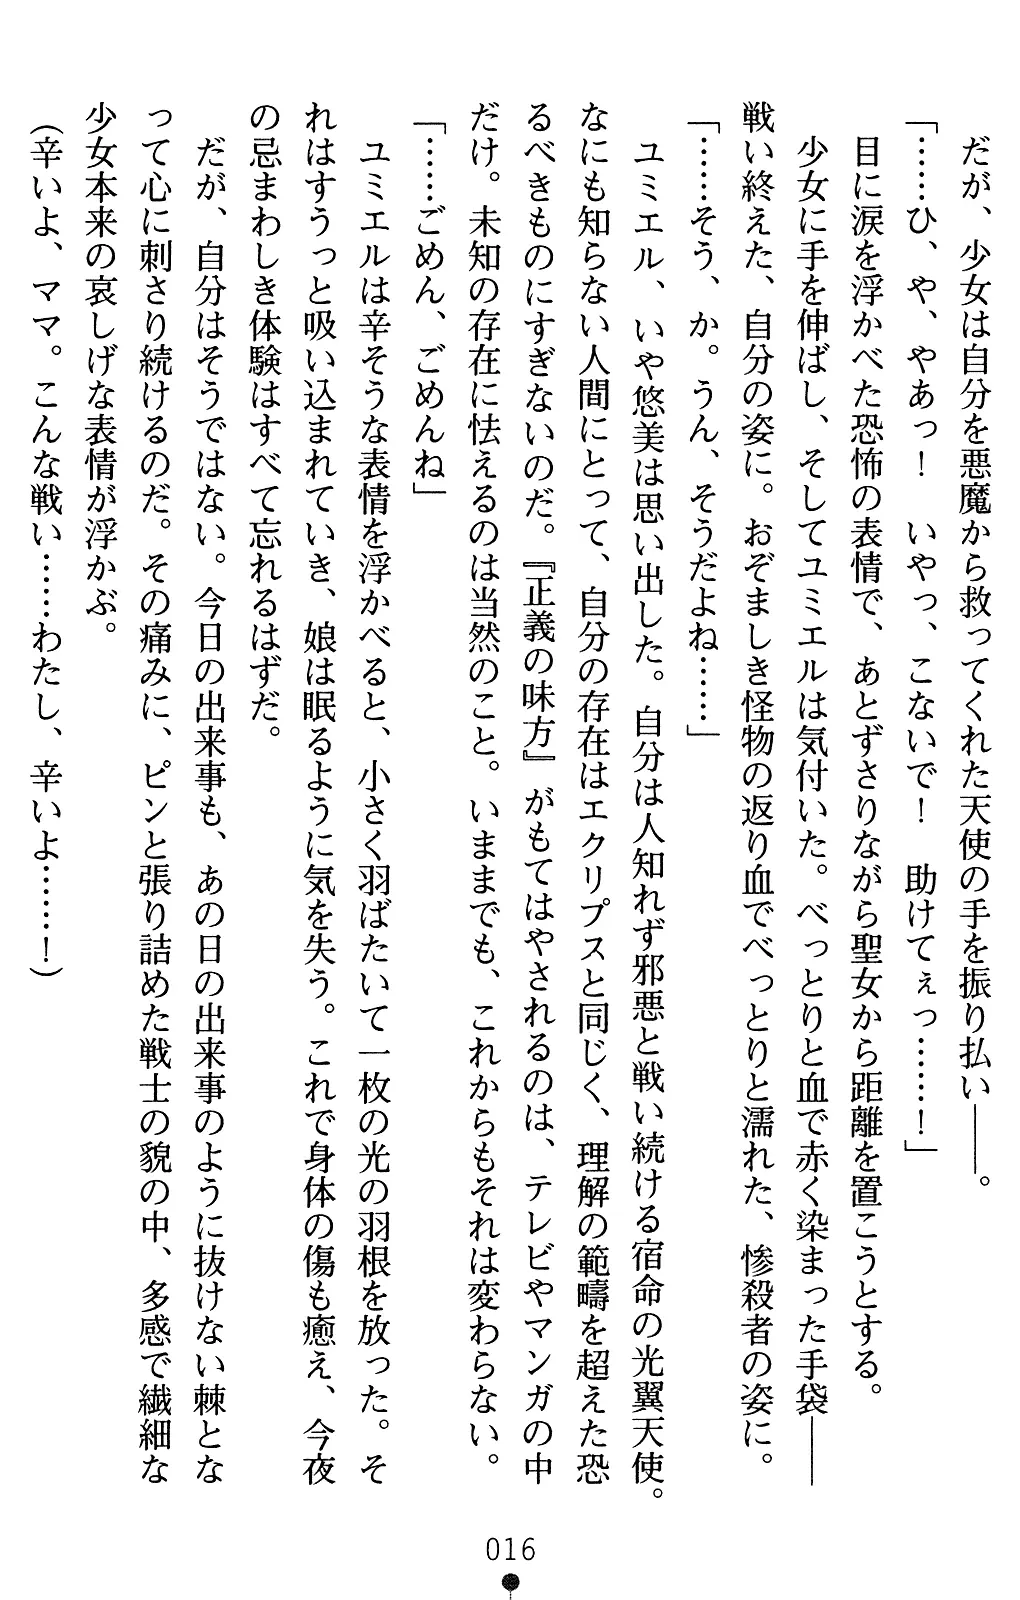 だが、少女は自分を悪魔から救ってくれた天使の手を振り払い――。
「……ひ、や、やあっ！　いやっ、こないで！　助けてぇっ……！」
目に涙を浮かべた恐怖の表情で、あとずさりながら聖女から距離を置こうとする。
少女に手を伸ばし、そしてユミエルは気付いた。べっとりと血で赤く染まった手袋――
戦い終えた、自分の姿に。おぞましき怪物の返り血でべっとりと濡れた、惨殺者の姿に。
「……そう、か。うん、そうだよね……」
ユミエル、いや悠美は思い出した。自分は人知れず邪悪と戦い続ける宿命の光翼天使。
なにも知らない人間にとって、自分の存在はエクリプスと同じく、理解の範疇を超えた恐
るべきものにすぎないのだ。『正義の味方』がもてはやされるのは、テレビやマンガの中
だけ。未知の存在に怯えるのは当然のこと。いままでも、これからもそれは変わらない。
「……ごめん、ごめんね」
ユミエルは辛そうな表情を浮かべると、小さく羽ばたいて一枚の光の羽根を放った。そ
れはすうっと吸い込まれていき、娘は眠るように気を失う。これで身体の傷も癒え、今夜
の忌まわしき体験はすべて忘れるはずだ。
だが、自分はそうではない。今日の出来事も、あの日の出来事のように抜けない棘とな
って心に刺さり続けるのだ。その痛みに、ピンと張り詰めた戦士の貌の中、多感で繊細な
少女本来の哀しげな表情が浮かぶ。
（辛いよ、ママ。こんな戦い……わたし、辛いよ……！）
016